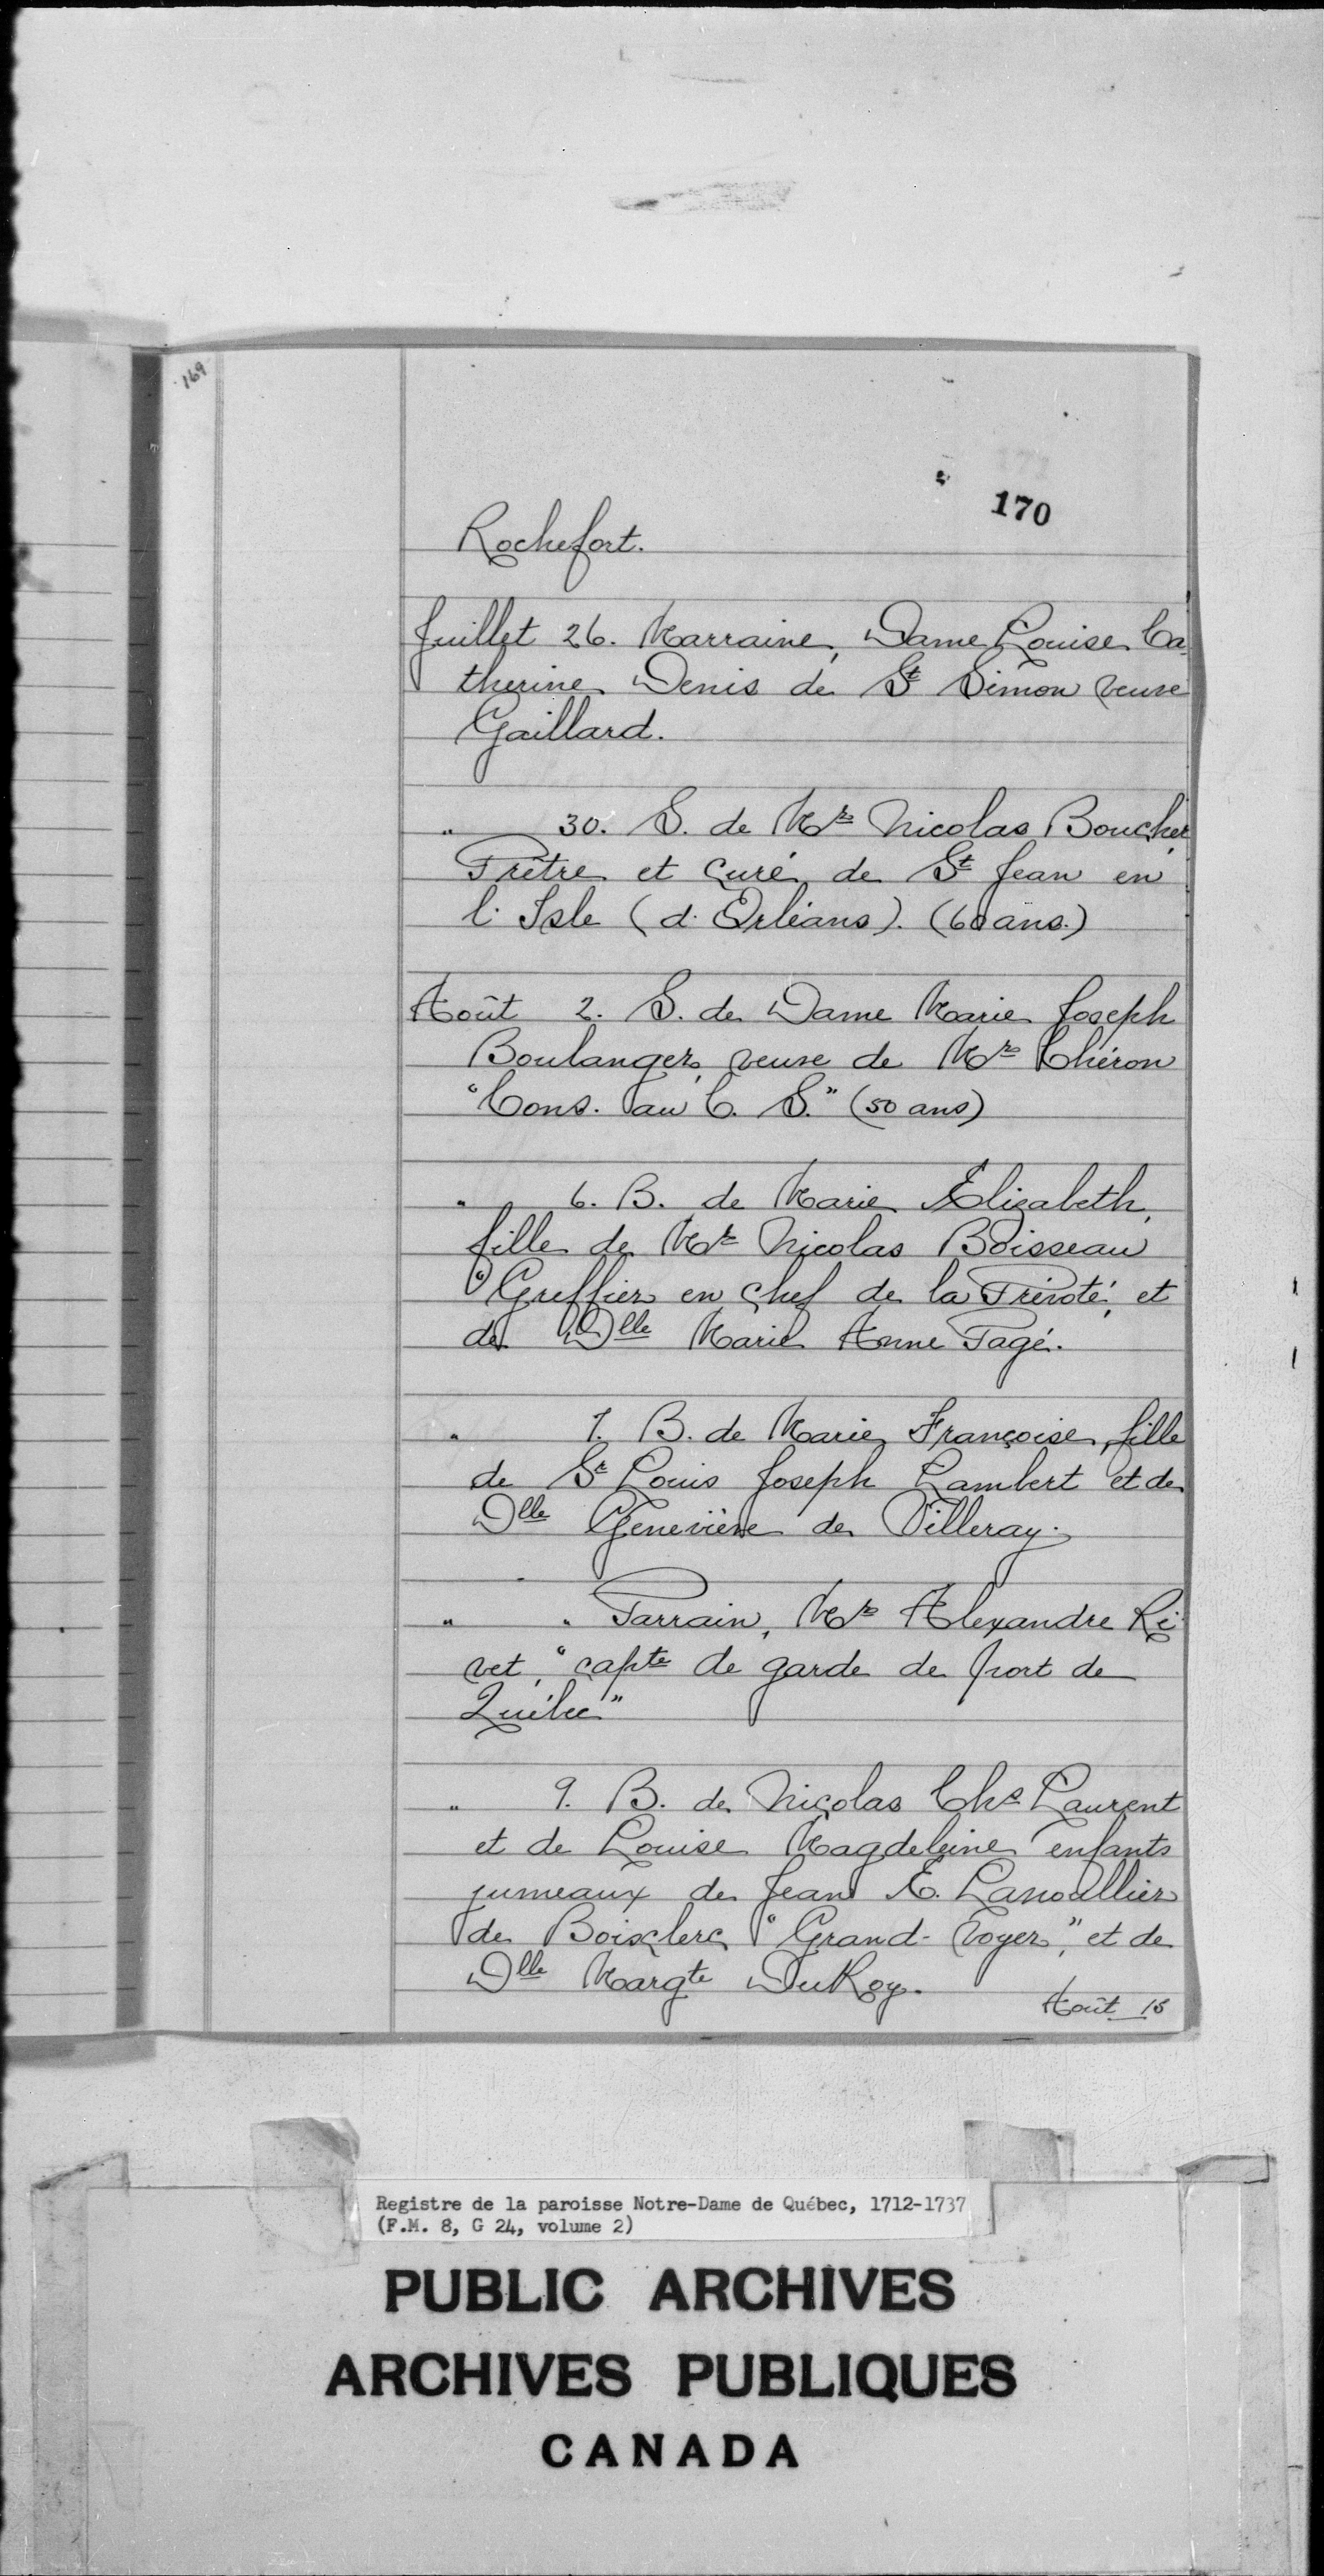 169
170
Rochefort.
Juillet 26. Marraine, Dame Louise Ca-
therine Denis de St Simon veuve
Gaillard.
" 30. S. de Mr Nicolas Boucher,
Prêtre et curé de St Jean en
l'Isle (d'Orléans). (60 ans.)
Août 2. S. de Dame Marie Joseph
Boulanger, veuve de Mr Chéron
"Cons. au C. S." (50 ans)
" 6. B. de Marie Elizabeth,
fille de Mr Nicolas Boisseau
"Greffier en chef de la Prévoté, et
de Dlle Marie Anne Pagé.
" 7. B. de Marie Françoise, fille
de Sr Louis Joseph Lambert et de
Dlle Geneviève de Villeray.
" " Parrain, Mr Alexandre Ri-
vet, "capte de garde de port de
Québec"
" 9. B. de Nicolas Chs Laurent
et de Louise Magdeleine enfants
jumeaux de Jean E. Lanoullier
de Boisclerc "Grand-Voyer," et de
Dlle Margte DuRoy.
Août 15
Registre de la paroisse Notre-Dame de Québec, 1712-1737
(F.M. 8, G 24, volume 2)
PUBLIC ARCHIVES
ARCHIVES PUBLIQUES
CANADA